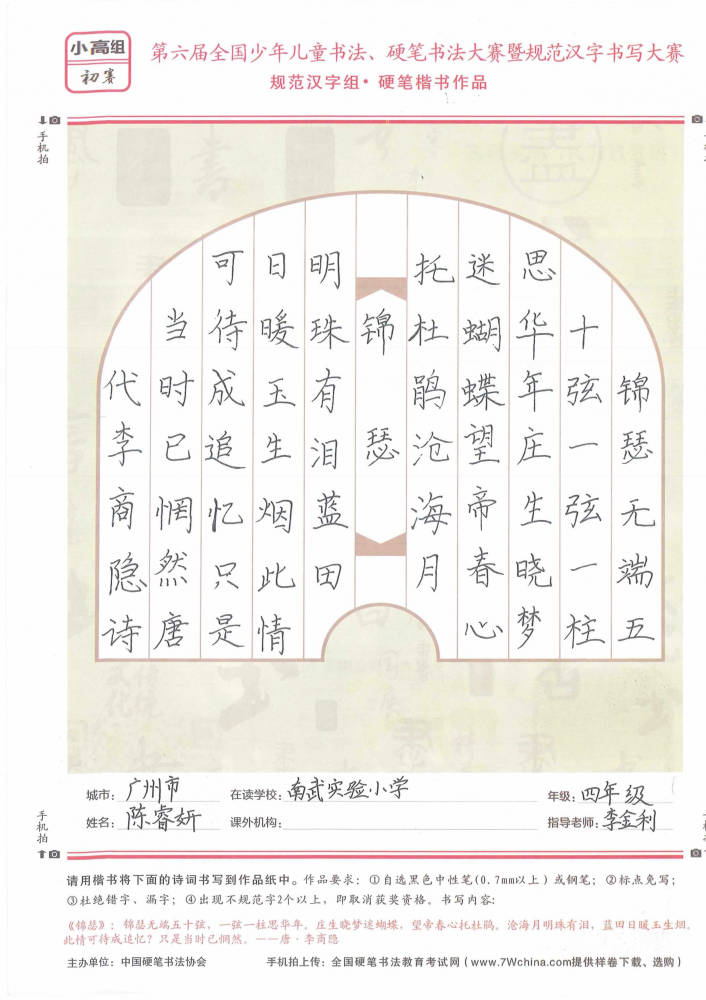 小高组
初赛
第六届全国少年儿童书法、硬笔书法大赛暨规范汉字书写大赛
规范汉字组·硬笔楷书作品
手机拍
锦瑟无端五
十弦一弦一柱
思华年庄生晓梦
迷蝴蝶望帝春心
托杜鹃沧海月
锦瑟
明珠有泪蓝田
日暖玉生烟此情
可待成追忆只是
当时已惘然唐
代李商隐诗
城市：广州市 在读学校：南武实验小学 年级：四年级
姓名：陈睿妍 课外机构： 指导老师：李金利
手机拍
请用楷书将下面的诗词书写到作品纸中。作品要求：①自选黑色中性笔(0.7mm以上）或钢笔；②标点免写；
③杜绝错字、漏字；④出现不规范字2个以上，即取消获奖资格。书写内容：
《锦瑟》：锦瑟无端五十弦，一弦一柱思华年。庄生晓梦迷蝴蝶，望帝春心托杜鹃。沧海月明珠有泪，蓝田日暖玉生烟。
此情可待成追忆？只是当时已惘然。——唐·李商隐
主办单位：中国硬笔书法协会 手机拍上传：全国硬笔书法教育考试网（www.7Wchina.com提供样卷下载、选购）